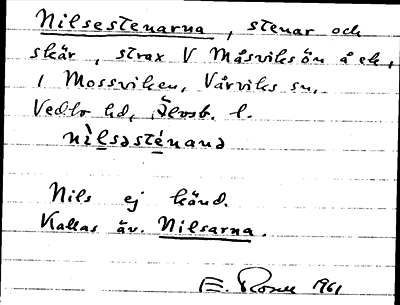 Nilsestenarna, stenar och
skär, strax V Måsviksön å ek,
i Mossviken, Vårviks sn,
Vedbo hd, Älvsb. l.
nìlsəsténanə
Nils ej känd.
Kallas äv. Nilsarna.
E. 1961